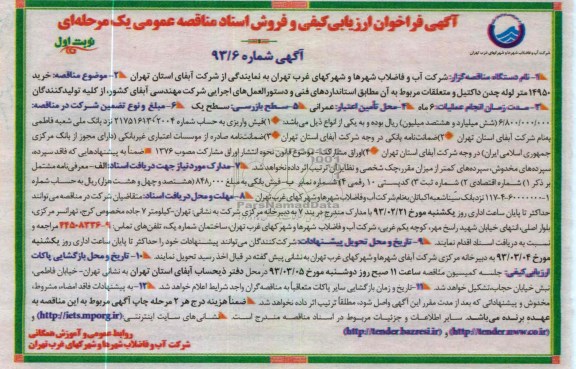 آگهی فراخوان ارزیابی کیفی و فروش اسناد مناقصه عمومی یک مرحله‌ای
نوبت اول
آگهی شماره ۹۳/۶
شرکت آب و فاضلاب شهرها و شهرکهای غرب تهران
۱- نام دستگاه مناقصه‌گزار: شرکت آب و فاضلاب شهرها و شهرکهای غرب تهران به نمایندگی از شرکت آبفای استان تهران ۲- موضوع مناقصه: خرید
۱۴۹۵۰ متر لوله چدن داکتیل و متعلقات مربوط به آن مطابق استانداردهای فنی و دستورالعمل‌های اجرایی شرکت مهندسی آبفای کشور، از کلیه تولیدکنندگان
۳- مدت زمان انجام عملیات: ۶ ماه ۴- محل تأمین اعتبار: عمرانی ۵- سطح بازرسی: سطح یک ۶- مبلغ و نوع تضمین شرکت در مناقصه:
۶/۸۰۰/۰۰۰/۰۰۰ (شش میلیارد و هشتصد میلیون) ریال بوده و به یکی از انواع ذیل می‌باشد: ۱) فیش واریزی به حساب شماره ۲۱۷۵۱۶۱۳۰۲۰۰۴ نزد بانک ملی شعبه فاطمی
به‌نام شرکت آبفای استان تهران ۲) ضمانت‌نامه بانکی در وجه شرکت آبفای استان تهران ۳) ضمانت‌نامه صادره از موسسات اعتباری غیربانکی (دارای مجوز از بانک مرکزی
جمهوری اسلامی ایران) در وجه شرکت آبفای استان تهران ۴) اوراق مشارکت موضوع قانون نحوه انتشار اوراق مشارکت مصوب ۱۳۷۶ ضمناً به پیشنهادهایی که فاقد سپرده،
سپرده‌های مخدوش، سپرده‌های کمتر از میزان مقرر، چک شخصی و نظایر آن ترتیب اثر داده نخواهد شد. ۷- مدارک مورد نیاز جهت دریافت اسناد: الف- معرفی‌نامه مشتمل
بر ذکر ۱) شماره اقتصادی ۲) شماره ثبت ۳) کدپستی ۱۰ رقمی ۴) شماره نمابر ب- فیش بانکی به مبلغ ۸۴۸,۰۰۰ (هشتصد و چهل و هشت هزار) ریال به حساب شماره
نزد بانک سینا شعبه اکباتان به‌نام شرکت آب و فاضلاب شهرها و شهرکهای غرب تهران ۸- مهلت و محل دریافت اسناد: متقاضیان شرکت در مناقصه می‌توانند
حداکثر تا پایان ساعت اداری روز یکشنبه مورخ ۹۳/۰۲/۲۱ با مدارک مندرج در بند ۷ به دبیرخانه مرکزی شرکت به نشانی تهران- کیلومتر ۷ جاده مخصوص کرج، تهرانسر مرکزی،
بلوار اصلی، انتهای خیابان شهید راسخ مهر، کوچه یکم غربی، شرکت آب و فاضلاب شهرها و شهرکهای غرب تهران، ساختمان شماره یک، تلفن‌های تماس: ۹-۴۴۵۰۸۳۳۶ مراجعه و
نسبت به دریافت اسناد اقدام نمایند. ۹- تاریخ و محل تحویل پیشنهادات: شرکت‌کنندگان می‌توانند پیشنهادات خود را حداکثر تا پایان ساعت اداری روز یکشنبه
مورخ ۹۳/۰۳/۰۴ به دبیرخانه مرکزی شرکت آبفای شهرها و شهرکهای غرب تهران به نشانی پیش گفته در قبال اخذ رسید تحویل نمایند. ۱۰- تاریخ و محل بازگشایی پاکات
ارزیابی کیفی: جلسه کمیسیون مناقصه ساعت ۱۱ صبح روز دوشنبه مورخ ۹۳/۰۳/۰۵ در محل دفتر ذیحساب آبفای استان تهران به نشانی تهران- خیابان فاطمی،
نبش خیابان حجاب، تشکیل خواهد شد. ۱۱- تاریخ و زمان بازگشایی سایر پاکات متعاقباً به مناقصه‌گران واجد شرایط اعلام خواهد شد. ۱۲- به پیشنهادات فاقد امضاء، مشروط،
مخدوش و پیشنهاداتی که بعد از مدت مقرر این آگهی واصل شود، مطلقاً ترتیب اثر داده نخواهد شد. ضمناً هزینه درج هر ۲ مرحله چاپ آگهی مربوط به این مناقصه به
عهده برنده می‌باشد. سایر اطلاعات و جزئیات مربوط در اسناد مناقصه مندرج است. نشانی‌های سایت اینترنتی (http://iets.mporg.ir) و
(http://tender.nww.co.ir) و (http://tender.bazresi.ir)
روابط عمومی و آموزش همگانی
شرکت آب و فاضلاب شهرها و شهرکهای غرب تهران